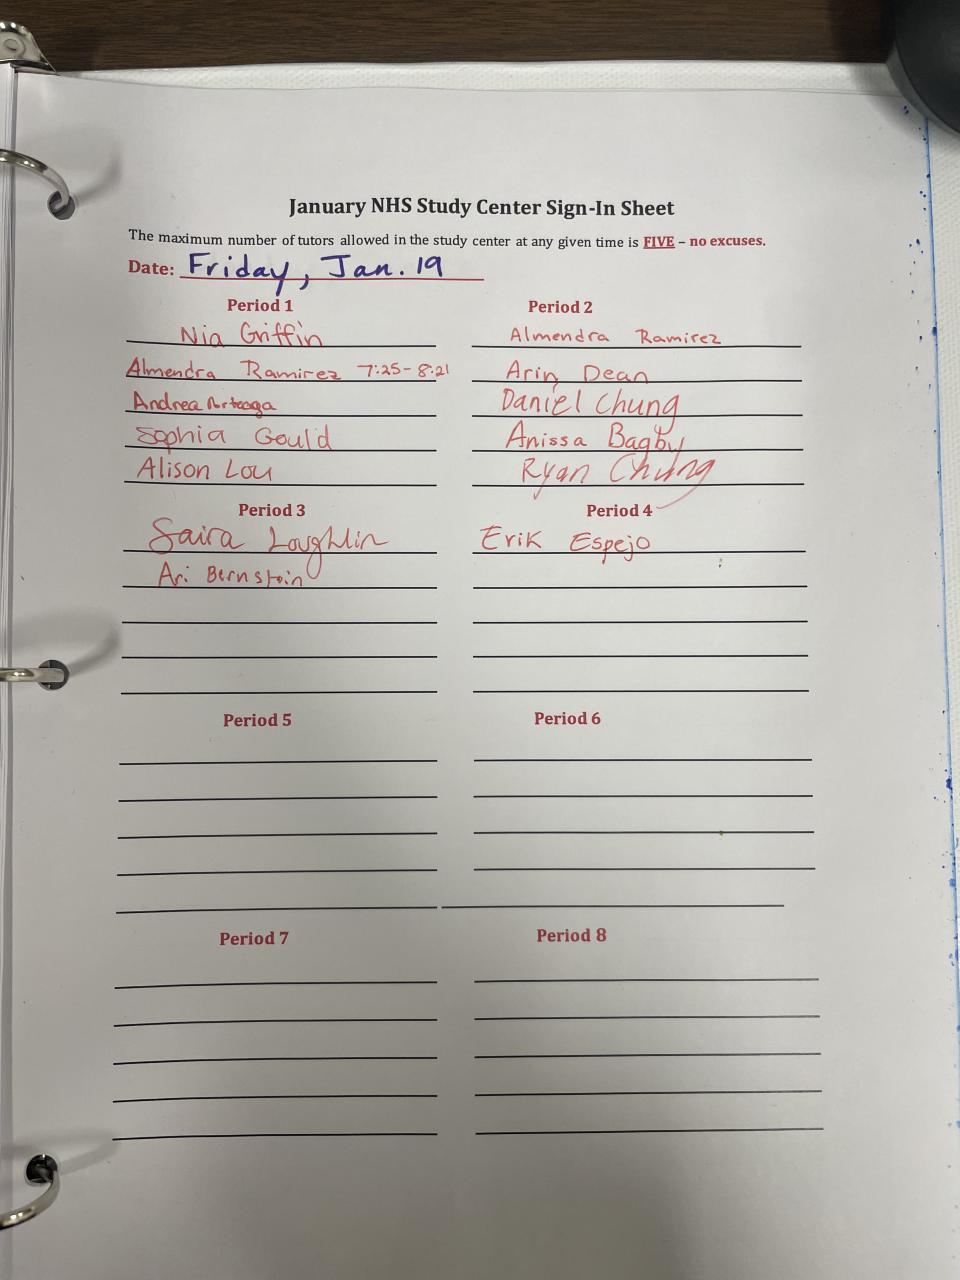 January NHS Study Center Sign-In Sheet
The maximum number of tutors allowed in the study center at any given time is FIVE – no excuses.
Date: Friday, Jan. 19
Period 1
Nia Griffin
Almendra Ramirez 7:25-8:21
Andrea Arteaga
Sophia Gould
Alison Lou
Period 2
Almendra Ramirez
Arin Dean
Daniel Chung
Anissa Bagby
Ryan Chung
Period 3
Saira Loughlin
Ari Bernstein
Period 4
Erik Espejo
Period 5
Period 6
Period 7
Period 8